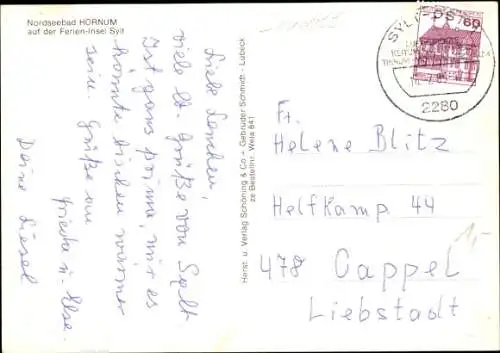 Nordseebad HÖRNUM
auf der Ferien-Insel Sylt
Liebe Lenchen,
viele lb. Grüße von Sylt.
Ist ganz prima, nur es
könnte bischen wärmer
sein. Grüße an
Friedr. u. Else.
Deine Liesel
Herst. u. Verlag Schöning & Co - Gebrüder Schmidt - Lübeck
ze Bestellnr. Weia 841
SYLT-OST
60
2280
Fr.
Helene Blitz
Helfkamp 44
478 Cappel
Liebstadt
1,-